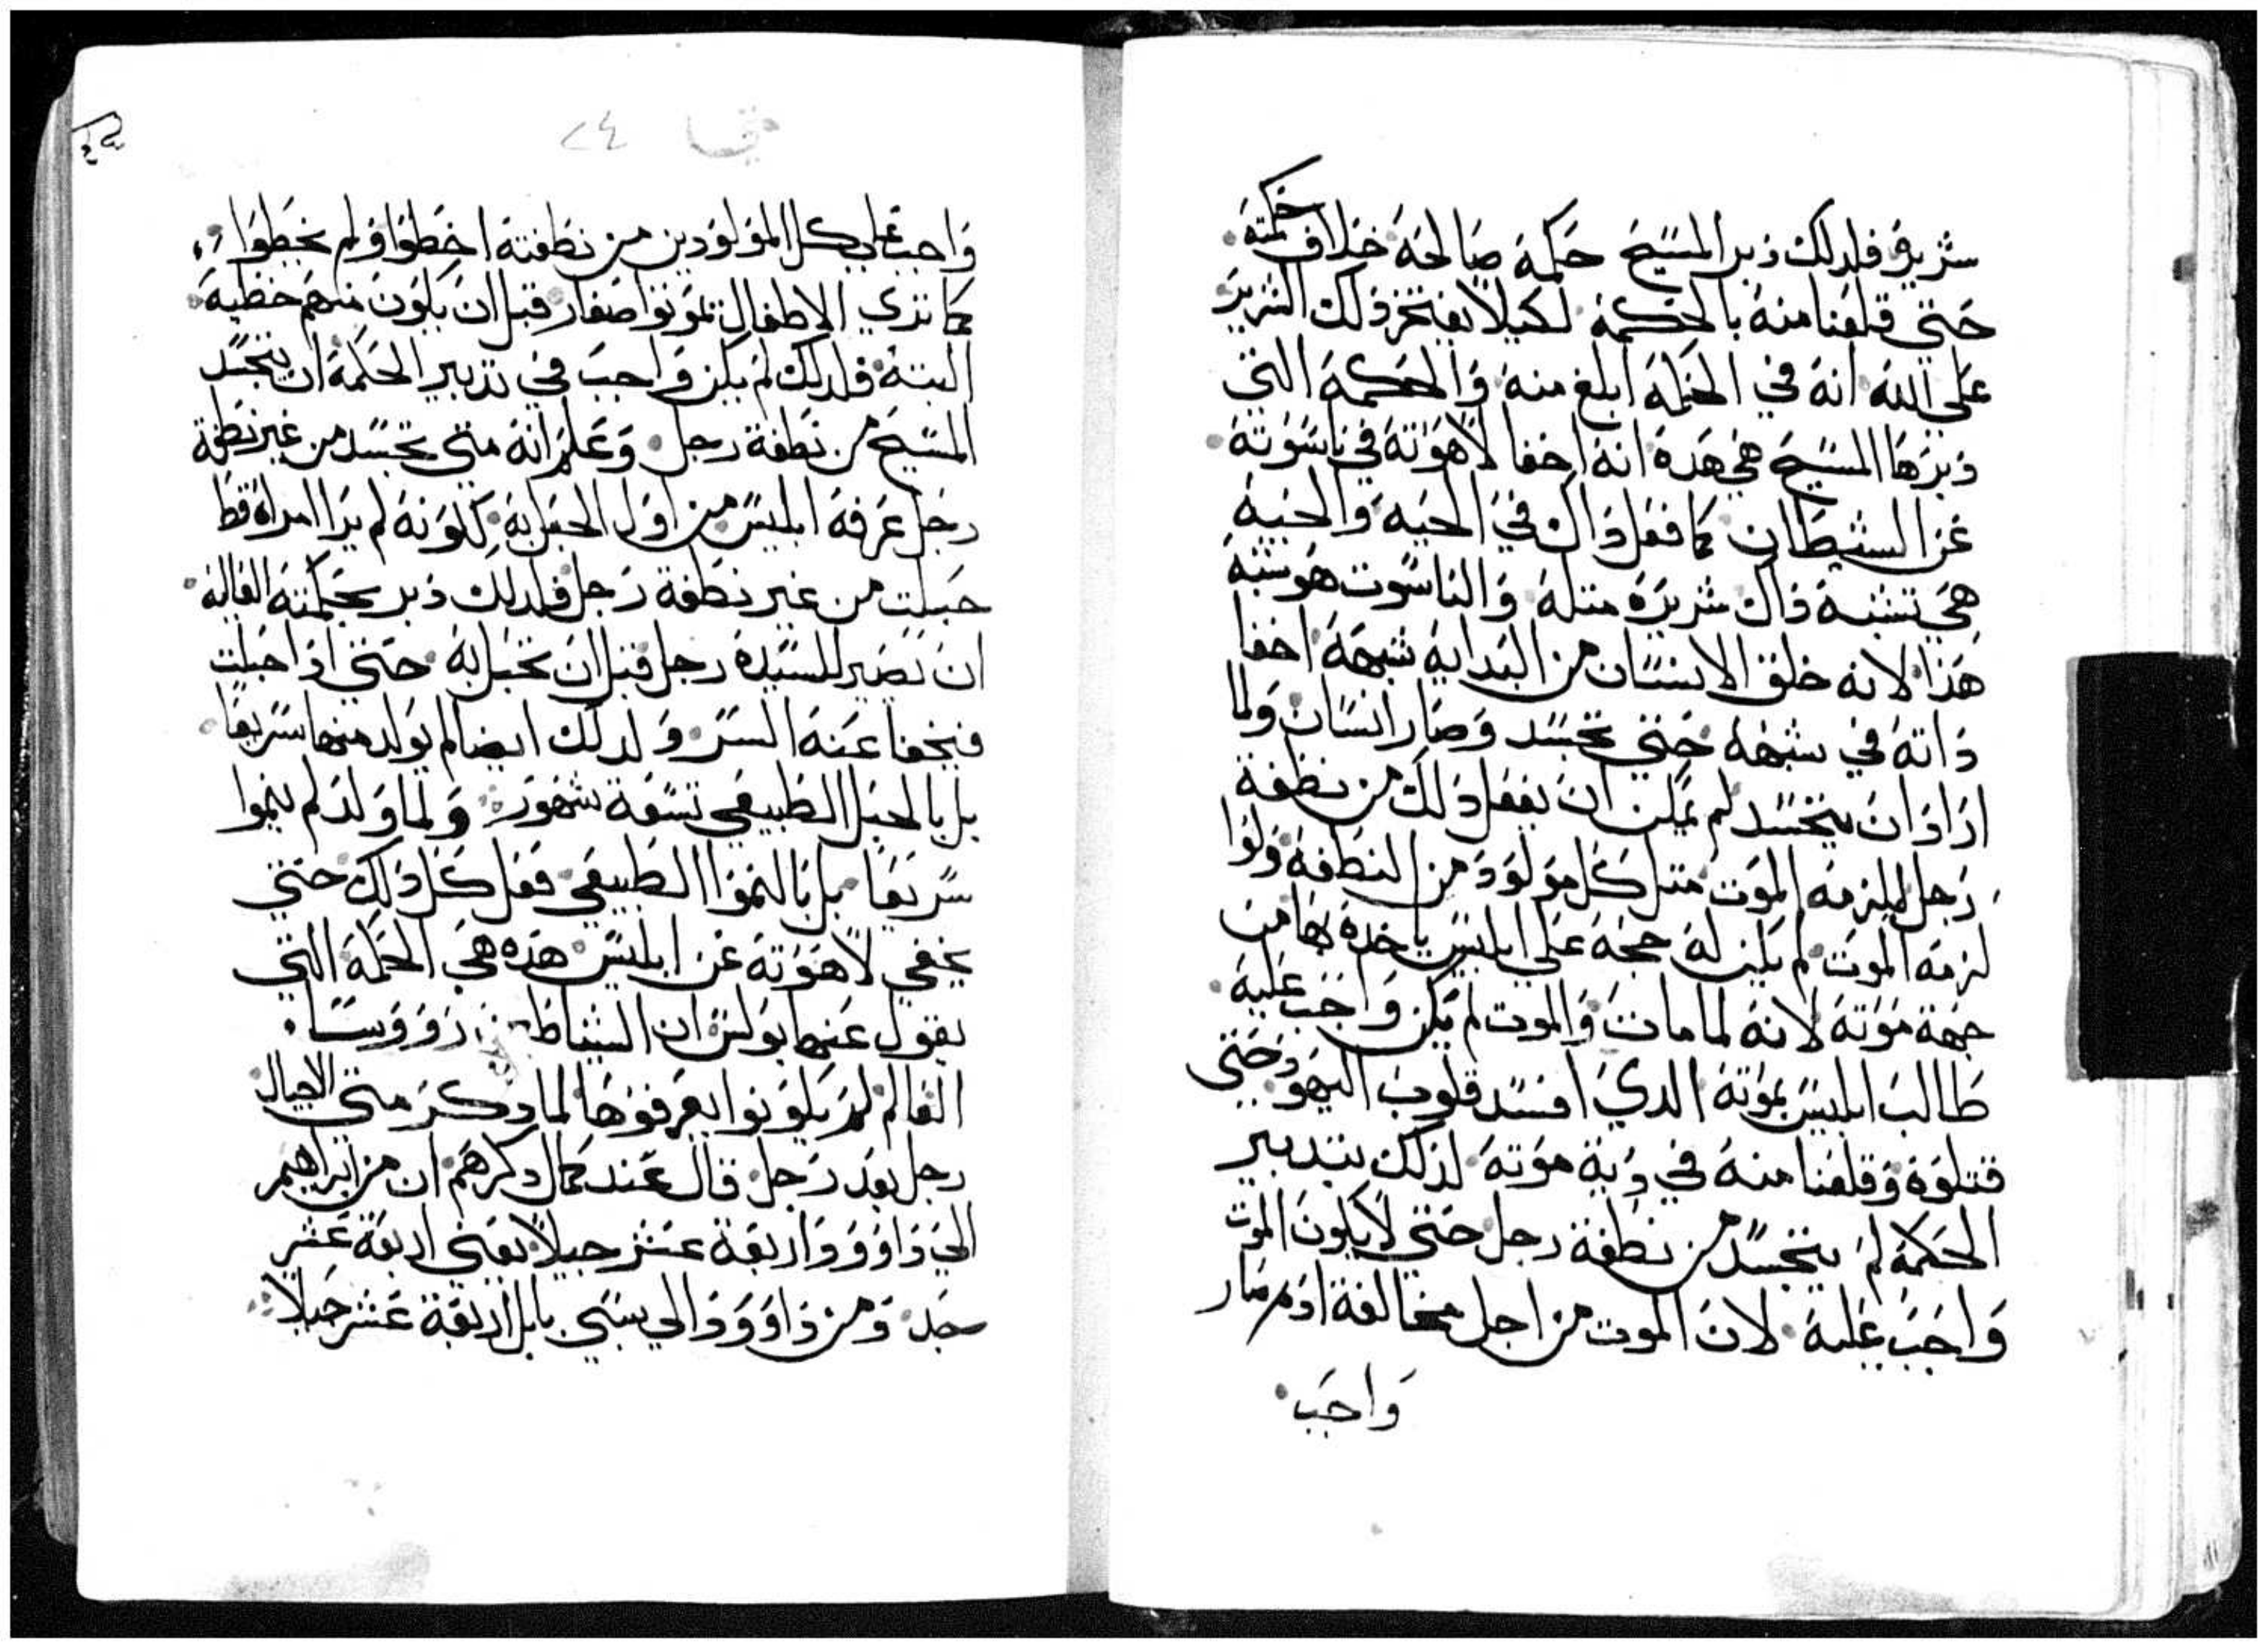 شريره فلدلك دبر المسيح حكمة صالحة خلاف حكمته
حتي قلعنا منه بالحكمة لكيلا يفتخر ذلك الشرير
على الله انه في الحكمة ابلغ منه والحكمة التي
دبرها المسيح هي هده انه اخفا لاهوته في ناسوته
عن الشيطان كما فعل داك في الحيه والحيه
هي تشبه داك شريره متله والناسوت هو شبه
هذا لانه خلق الانسان من البدايه شبهه اخفا
داته في شبهه حتي تجسد وصار انسان ولما
اراد ان يتجسد لم يمكن ان يفعل دلك من نطفة
رجل ليلا يلزمه الموت متل كل مولود من النطفه ولوا
لزمه الموت لم يكن له حجه علي ابليس ياخده بها من
جهة موته لانه لما مات والموت لم يكن واجب عليه
طالب ابليس بموته الدي افسد قلوب اليهود حتى
قتلوه وقلعنا منه في دية موته لدلك بتدبير
الحكمة لم يتجسد من نطفة رجل حتي لا يكون الموت
واجب عليه لان الموت من اجل مخالفة ادم صار
واجب
في ٢٤
واجب علي كل المولودين من نطفته اخطوا او لم يخطوا
كما تري الاطفال تموتوا صغار قبل ان يكون منهم خطيه
البتة فلدلك لم يكن واجب في تدبير الحكمة ان يتجسد
المسيح من نطفة رجل وعلم انه متي تجسد من غير نطفة
رجل عرفه ابليس من اول الحبل به لكونه لم يرا امراة قط
حبلت من غير نطفة رجل فلدلك دبر بحكمته العاليه
ان يصير للسيدة رجل قبل ان تحبل به حتي ادا حبلت
فيخفا عنه السر ولدلك ايضا لم يولد منها سريعا
بل بالحبل الطبيعي تسعة شهور ولما ولد لم ينموا
سريعا بل بالنموا الطبيعي فعل كل دلك حتي
يخفي لاهوته عن ابليس هده هي الحكمة التي
يقول عنها بولس ان الشياطين رووسا
العالم لم يكونوا يعرفوها لما دكر متي الاجيال
رجل بعد رجل قال عند كمال دكرهم ان من ابراهيم
الي داوود اربعة عشر جيلا يعني اربعة عشر
جد ومن داوود الي سبي بابل اربعة عشر جيلا